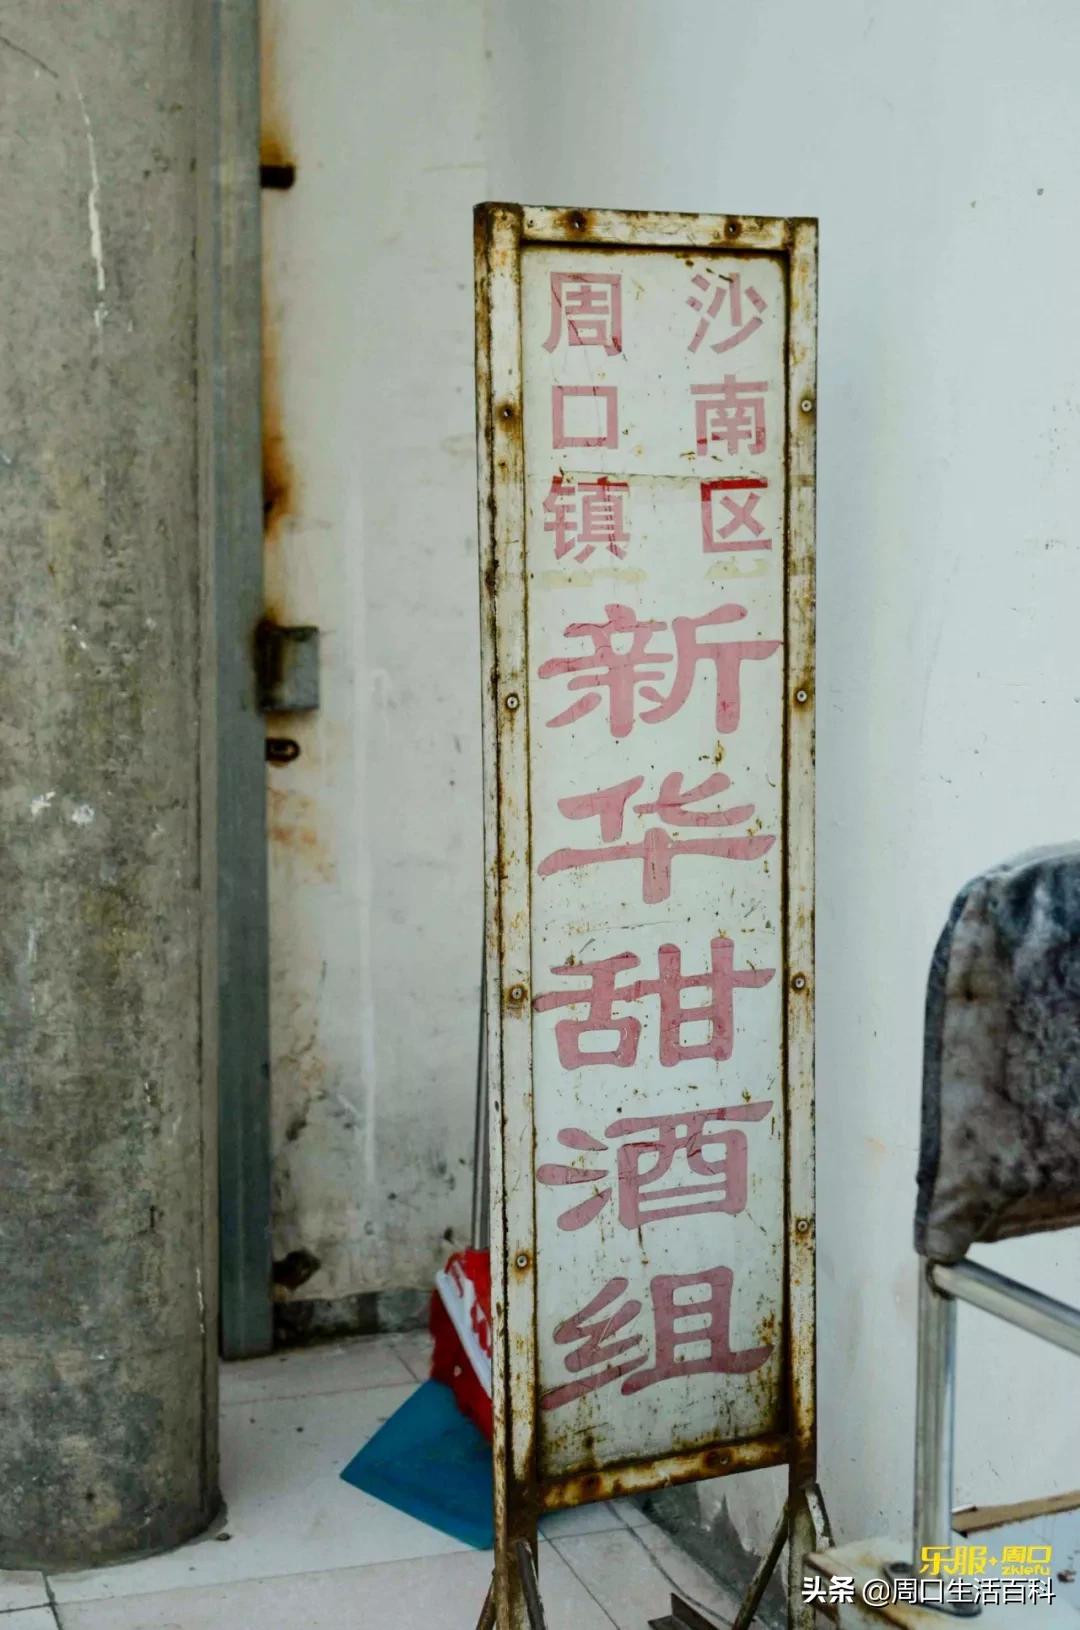 周口镇
沙南区
新华甜酒组
乐服+周口
zklefu
头条 @周口生活百科